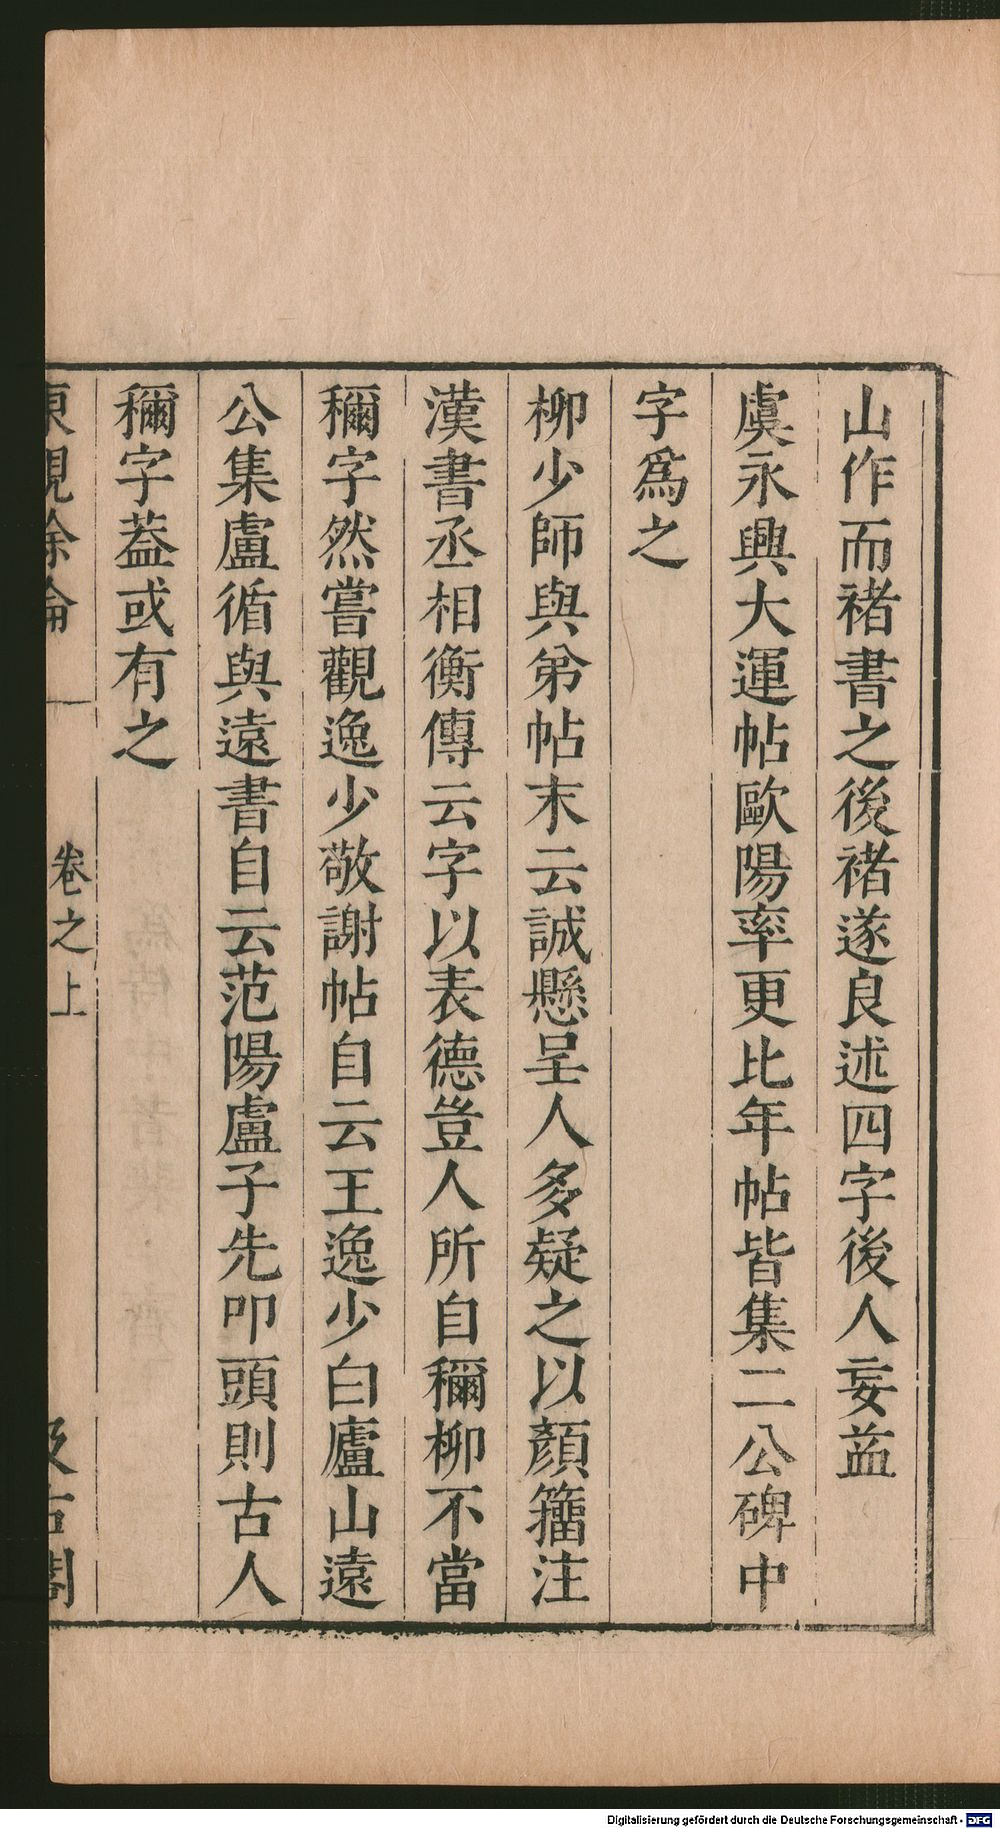 山作而褚書之後褚遂良述四字後人妄葢
虞永興大運帖歐陽率更比年帖皆集二公碑中
字爲之
柳少師與弟帖末云誠懸呈人多疑之以顏籀注
漢書丞相衡傳云字以表德豈人所自稱柳不當
稱字然嘗觀逸少敬謝帖自云王逸少白廬山遠
公集盧循與遠書自云范陽盧子先叩頭則古人
稱字葢或有之
東觀餘論 卷之上 汲古閣
Digitalisierung gefördert durch die Deutsche Forschungsgemeinschaft - DFG